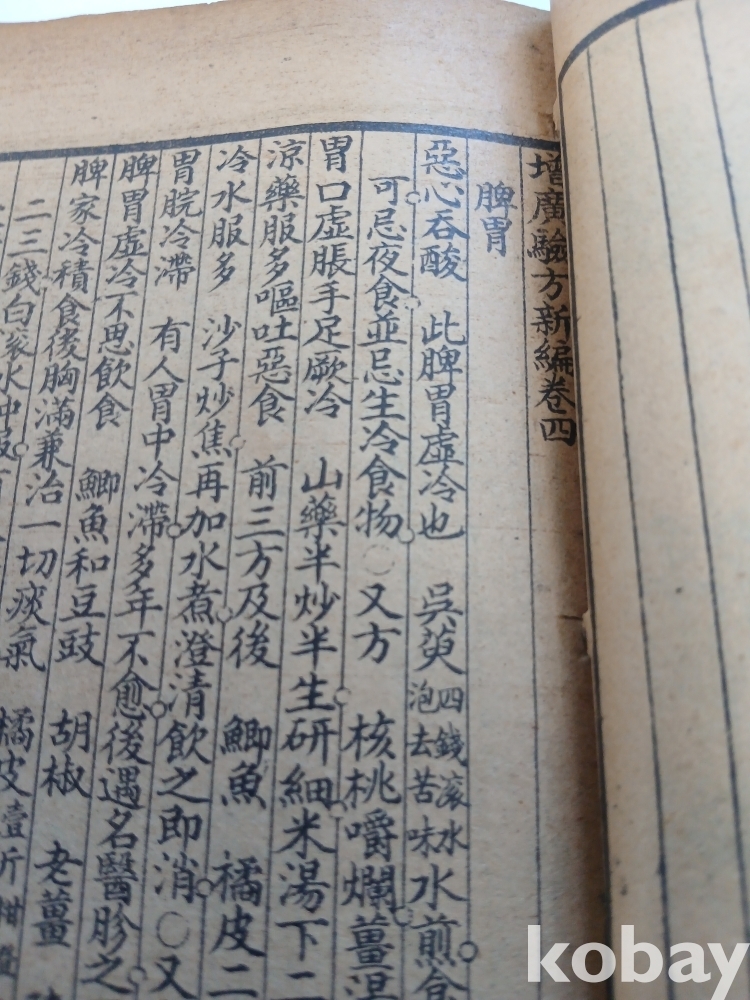 增廣驗方新編卷四
脾胃
惡心吞酸 此脾胃虛冷也 吳萸 四錢滾水泡去苦味 水煎食
可忌夜食並忌生冷食物○又方 核桃嚼爛薑湯
胃口虛脹手足厥冷 山藥半炒半生研細米湯下二
涼藥服多嘔吐惡食 前三方及後 鯽魚 橘皮二
冷水服多 沙子炒焦再加水煮澄清飲之即消○又
胃脘冷滯 有人胃中冷滯多年不愈後遇名醫胗之
脾胃虛冷不思飲食 鯽魚和豆豉 胡椒 老薑
脾家冷積食後胸滿兼治一切痰氣 橘皮壹斤
二三錢白滾水沖服
kobay